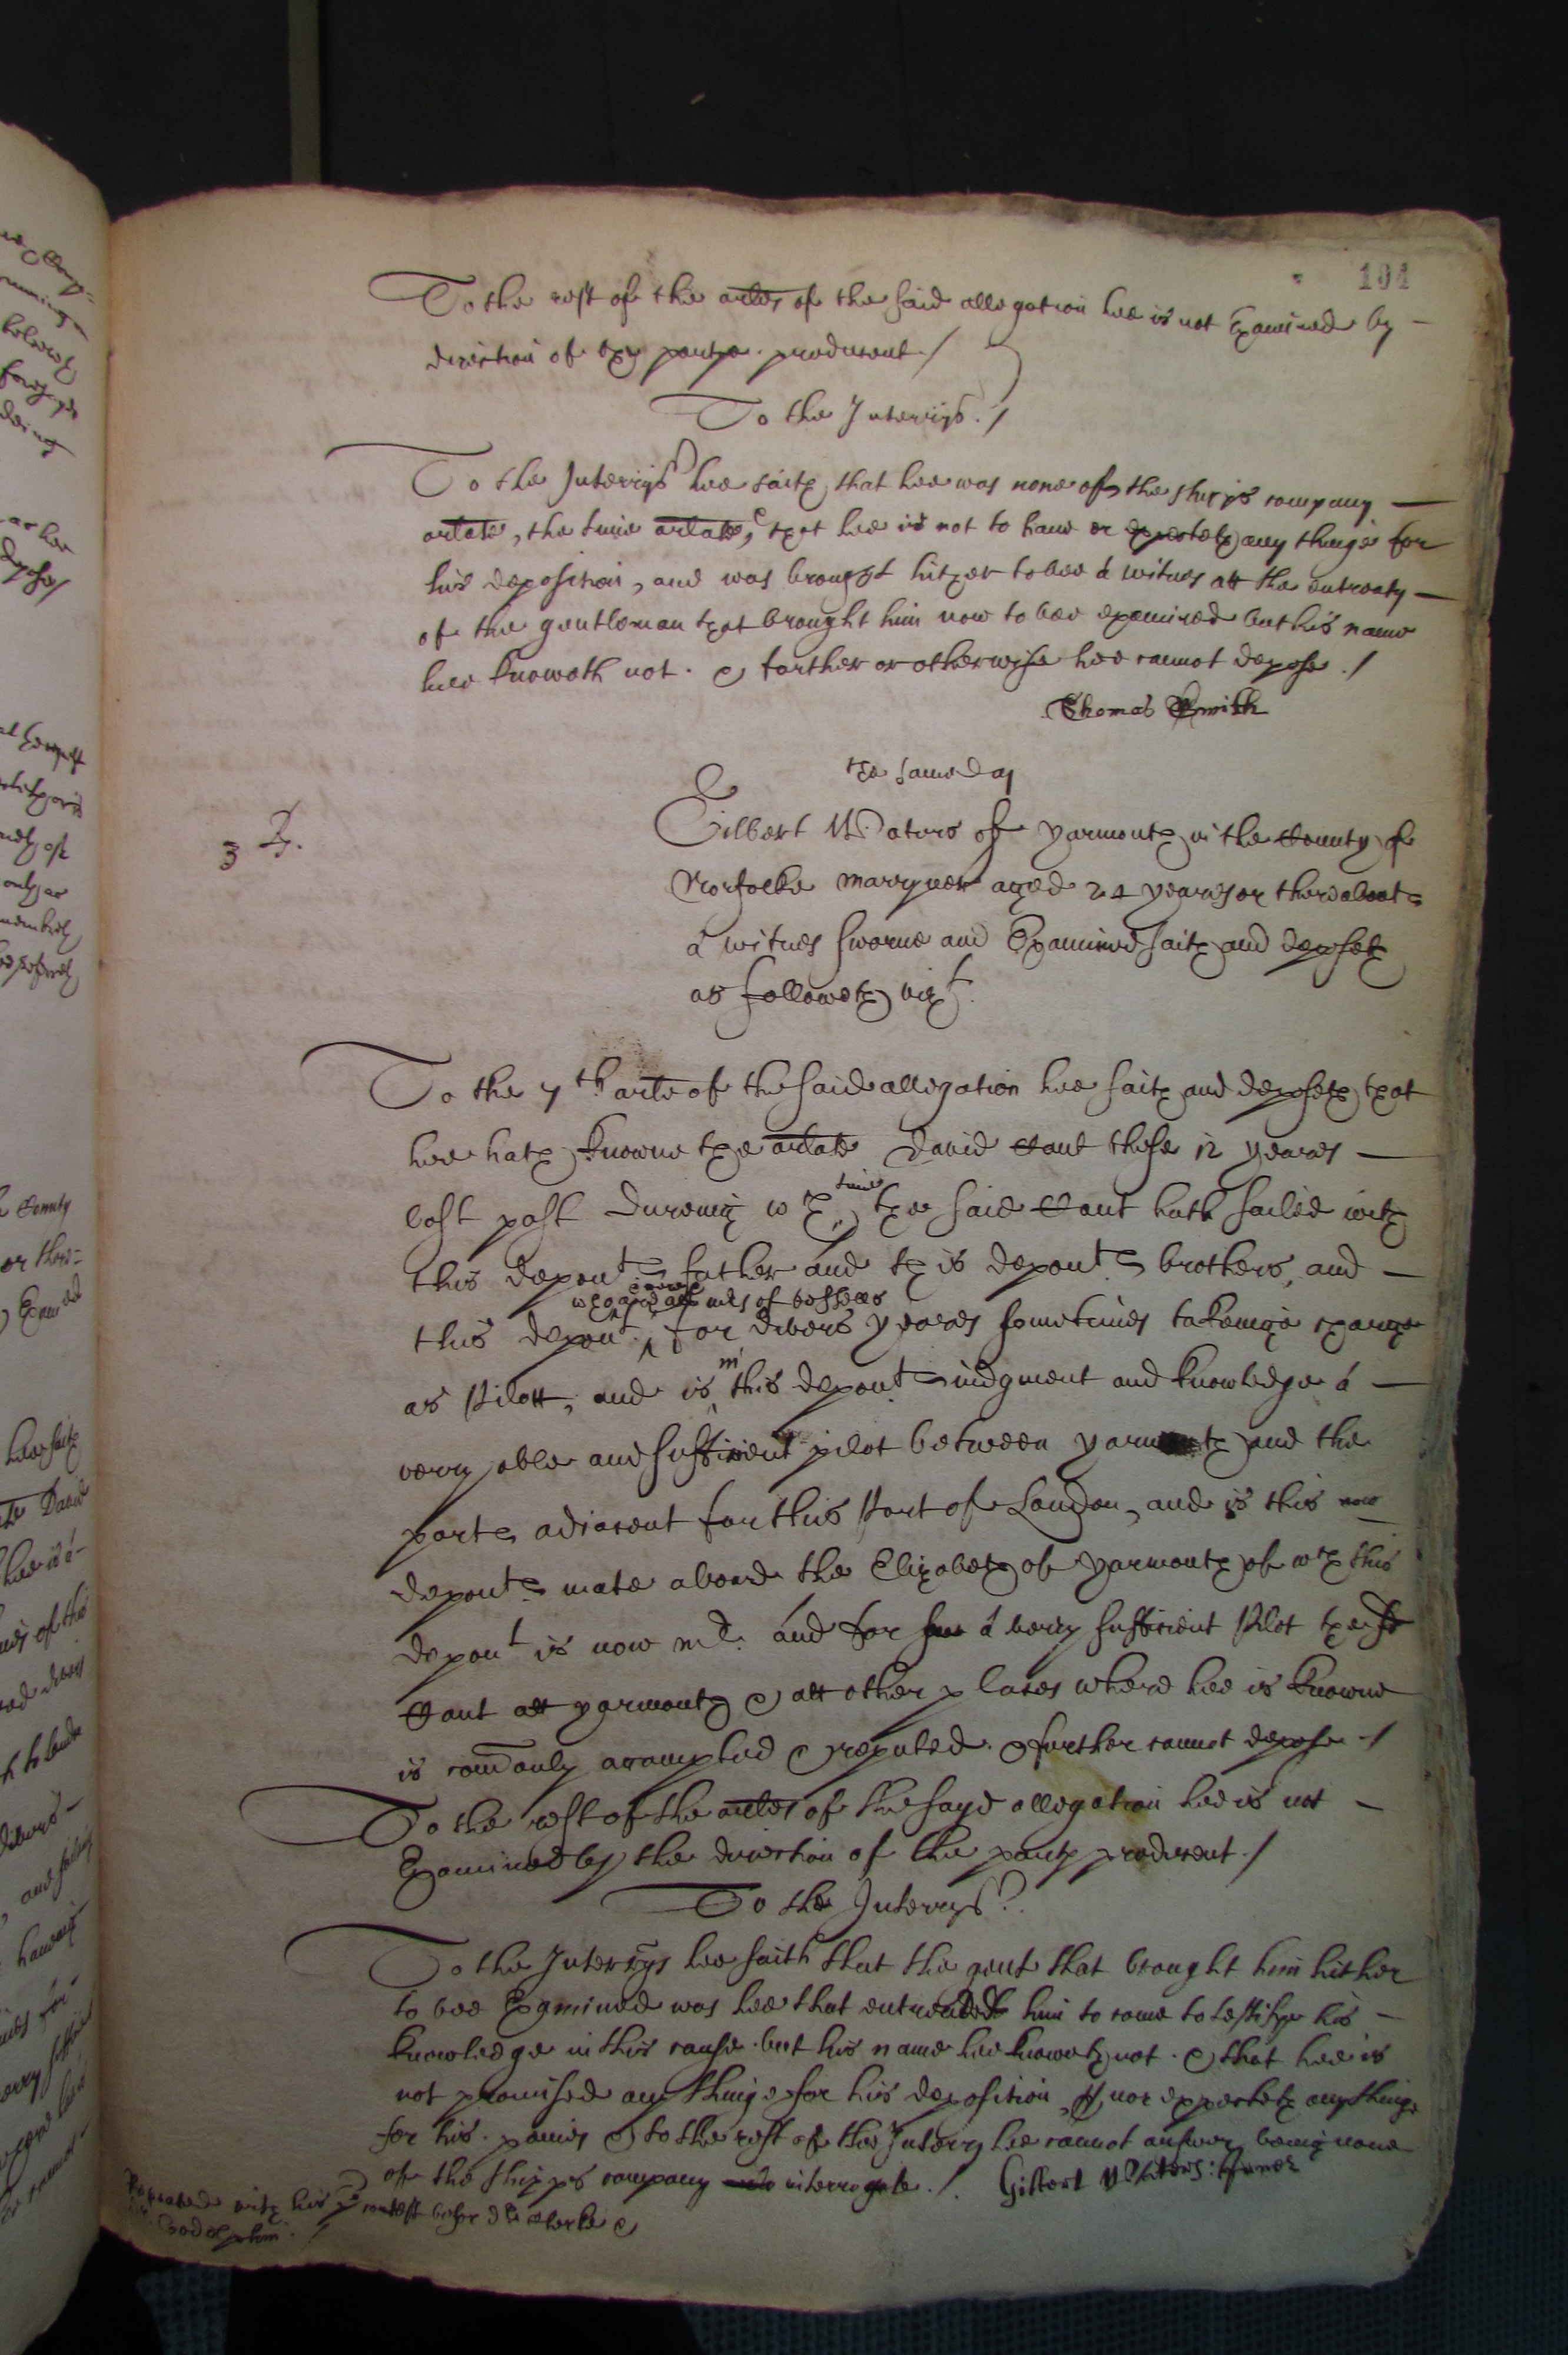 104
To the rest of the artes of the said allegation hee is not Examined by
direction of the partye producent./
To the Interrijs./
To the Interrijs hee saith that hee was none of the shipps company
artate, the time artate, that hee is not to have or expecteth any thinge for
his deposition, and was brought hither to bee á witnes att the entreaty
of the gentleman that brought him now to bee examined but his name
hee knoweth not. & further or otherwise hee cannot depose./
Thomas Smith
the same day
3 Gilbert Waters of Yarmouth in the County of
Norfolke marryner aged 24 yeares or thereabouts
á witnes sworne and Examined saith and deposeth
as followeth vizt.
To the 7th arte of the said allegation hee saith and deposeth that
hee hath knowne the artate David Cant these 12 yeares
last past dureing wch time the said Cant hath sailed with
this deponts father and this deponts brothers, and
who are all mrs of vessells
this depont. for divers yeares sometimes takeinge charge
as Pilott, and is in this deponts iudgment and knowledge á
very able and sufficient pilot betweea Yarmouth and the
ports adiacent for this Port of London, and is this now
deponts mate aboard the Elizabeth of Yarmouth of wch this
depont is now mr. and for á very sufficient Pilot the sd
Cant att Yarmouth & att other places where hee is knowne
is comonly accompted & reputed. & further cannot depose./
To the rest of the artes of the sayd allegation hee is not
Examined by the direction of the party producent./
To the Interrys
To the Interrys hee saith that the gent that brought him hither
to bee Examined was hee that entreated him to come to testifye his
knowledge in this cause but his name hee knoweth not. & that hee is
not promised any thinge for his deposition, nor expecteth any thinge
for his paines & to the rest of the Interry hee cannot answer being none
of the shipps company interrogate./ Gilbert Waters: Juner
Repeated with his contest before dr Clerke &
Godolphin./